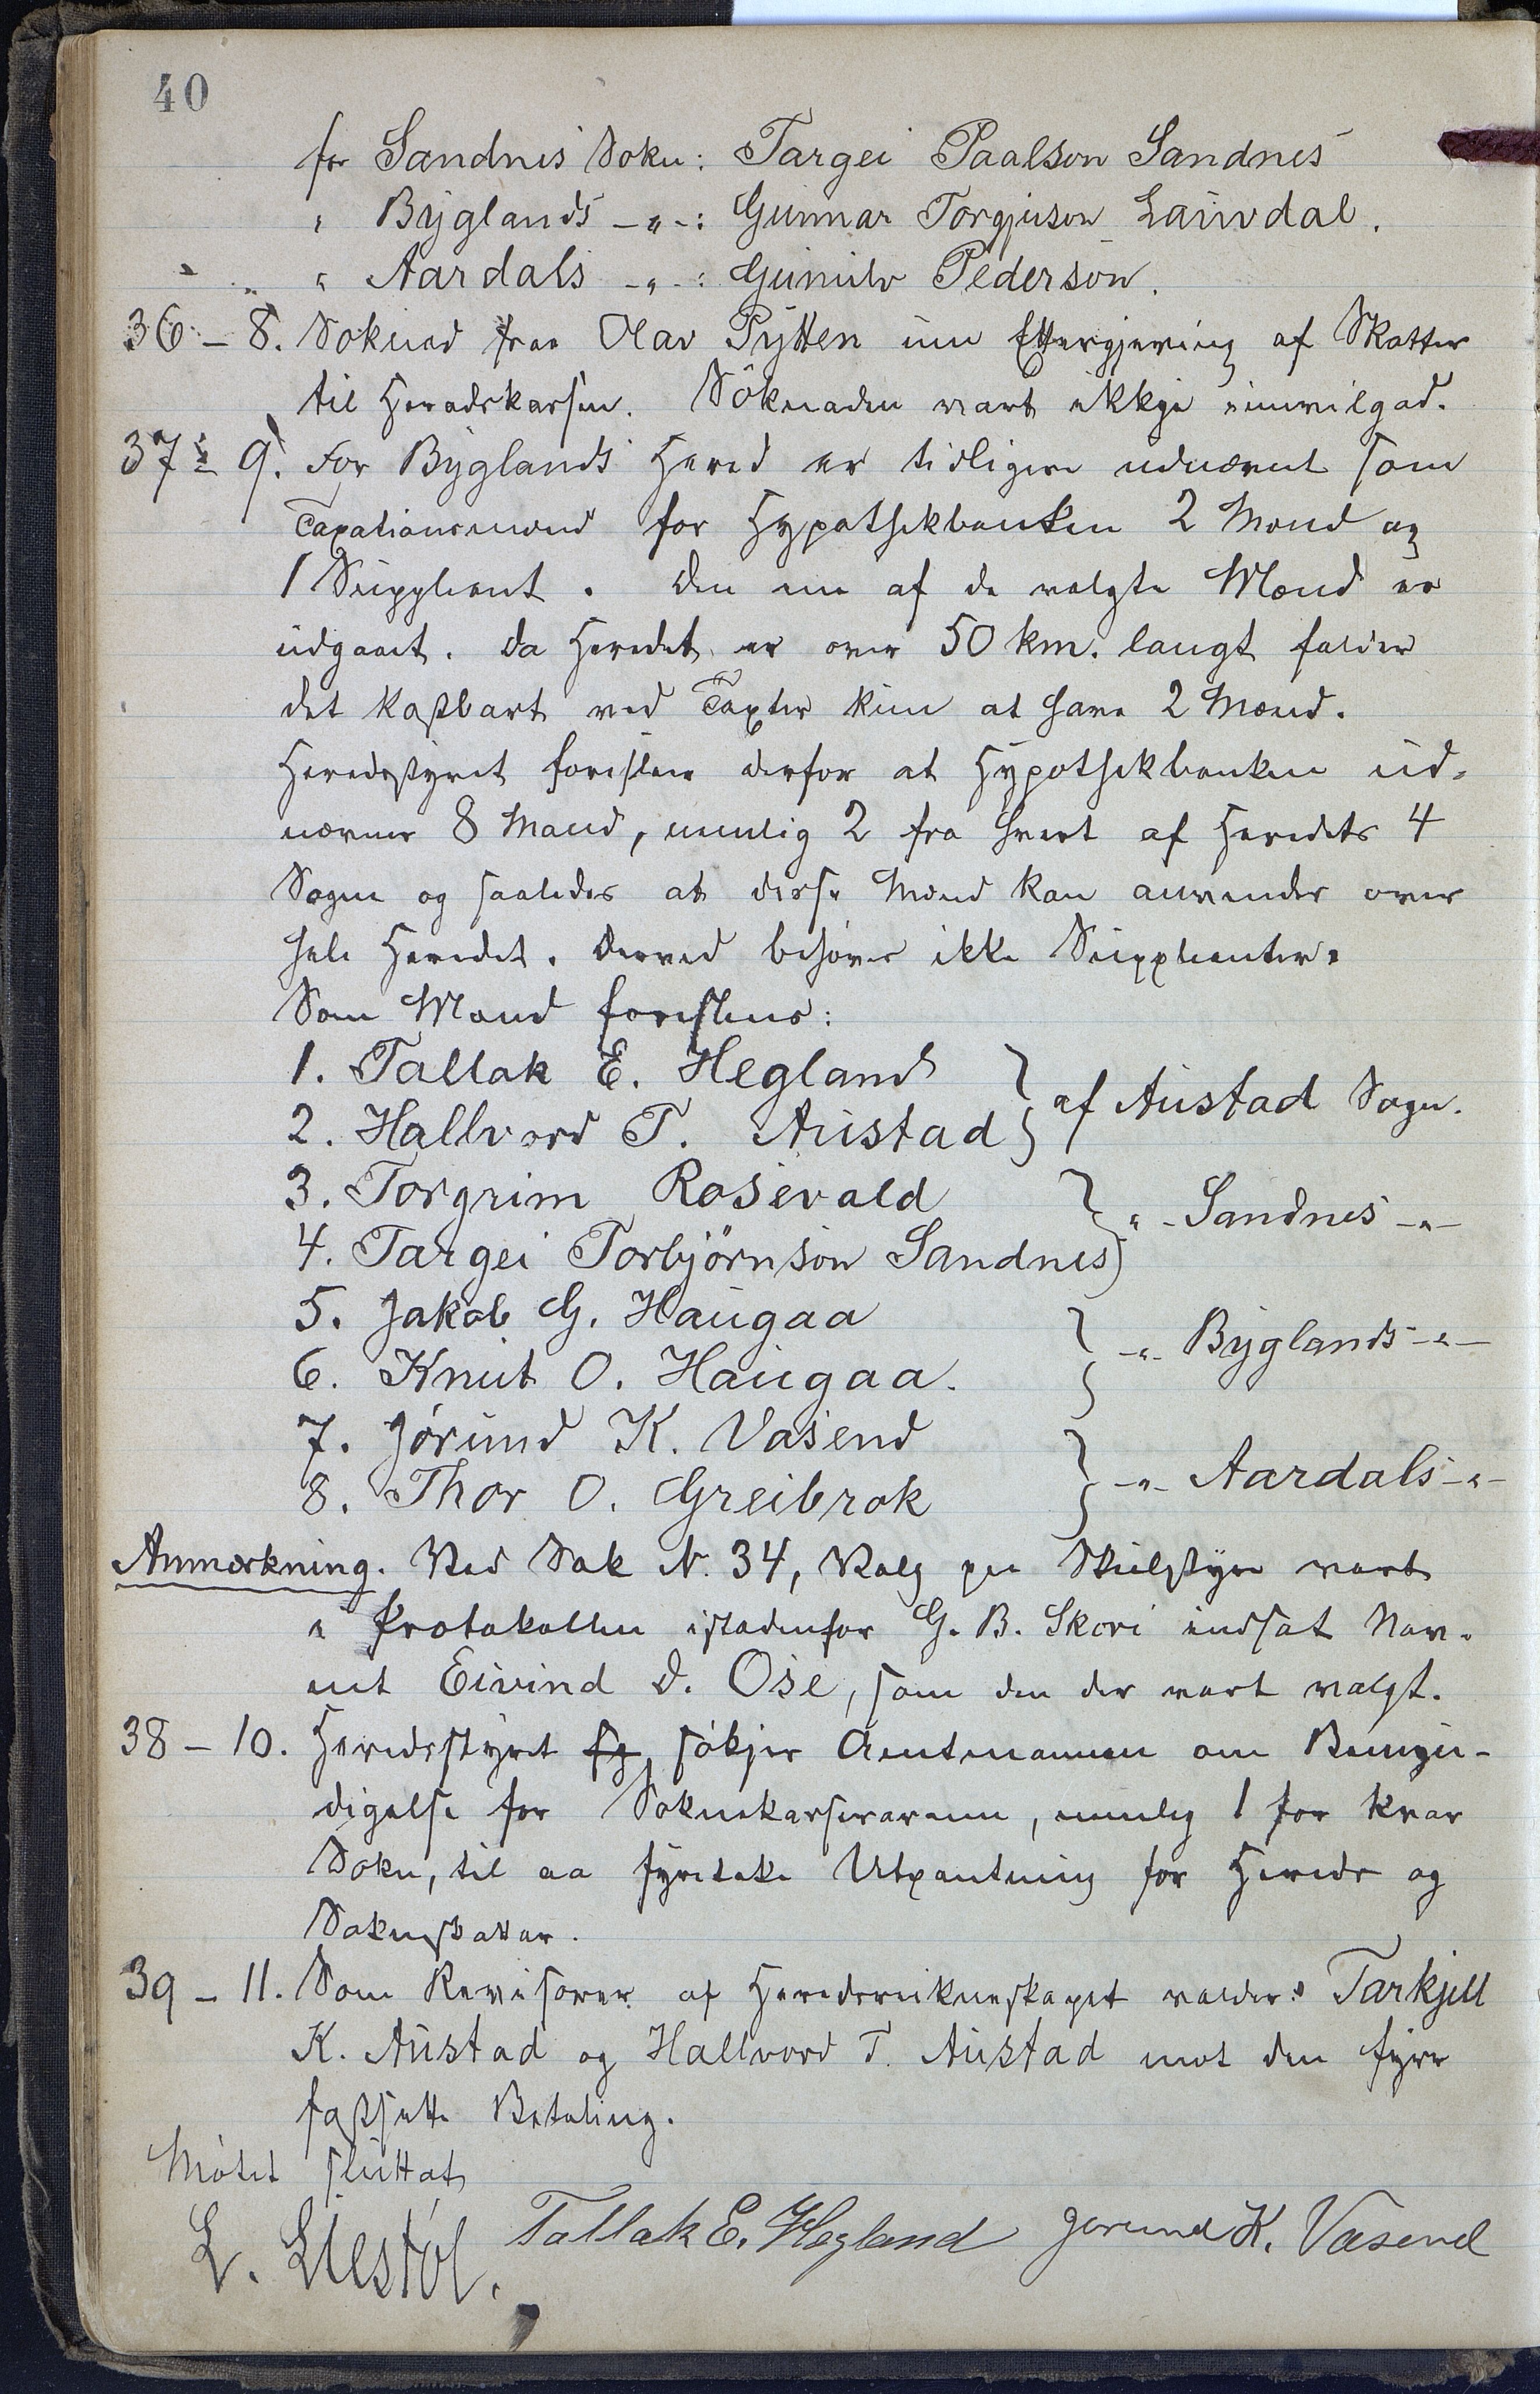 40
for Sandnes Sokn: Targei Paalson Sandnes
" Byglands -"-: Gunnar Torgjuson Lauvdal.
" Aardals -"-: Gunulv Pederson.
36 - 8. Soknad fraa Olav Pytten um Ettergjeving af Skatter
til Heradskassen. Söknaden vart ikkje innvilgad.
37 - 9. For Byglands Hered er tidligere udnævnt som
Taxationsmænd for Hypothekbanken 2 Mænd og
1 Suppleant. Den ene af de valgte Mænd er
udgaaet. Da Heredet er over 50 km. langt falder
det kostbart ved Taxter kun at have 2 Mænd.
Heredsstyret foreslaar derfor at Hypothekbanken ud-
nævner 8 Mænd, nemlig 2 fra hvert af Heredets 4
Sogne og saaledes at disse Mænd kan anvendes over
hele Heredet. Derved behøves ikke Suppleanter.
Som Mænd foreslaaes:
1. Tallak E. Hegland
2. Hallvord T. Austad } af Austad Sogn.
3. Torgrim Rosevald
4. Targei Torbjörnson Sandnes } " - Sandnes -"-
5. Jakob G. Haugaa
6. Knut O. Haugaa. } -"- Byglands -"-
7. Jórund K. Vasend
8. Thor O. Greibrok } -"- Aardals -"-
Anmærkning. Ved Sak N. 34, Valg paa Skulstyre vart
i Protokollen istadenfor G. B. Skori indsat Nav-
net Eivind D. Ose, som den der vart valgt.
38 - 10. Heredsstyret fe, sökjer Amtmannen om Bemyn-
digelse for Soknekasserarane, nemleg 1 for kvar
Sokn, til aa fyretaka Utpantning for Hereds og
Soknskattar.
39 - 11. Som Revisorer af Heredsreikneskapet valdes: Tarkjell
K. Austad og Hallvord T. Austad mot den fyrr
fastsette Betaling.
Mötet sluttat
L. Liestøl. Tallak E. Hegland Jorund K. Vasend